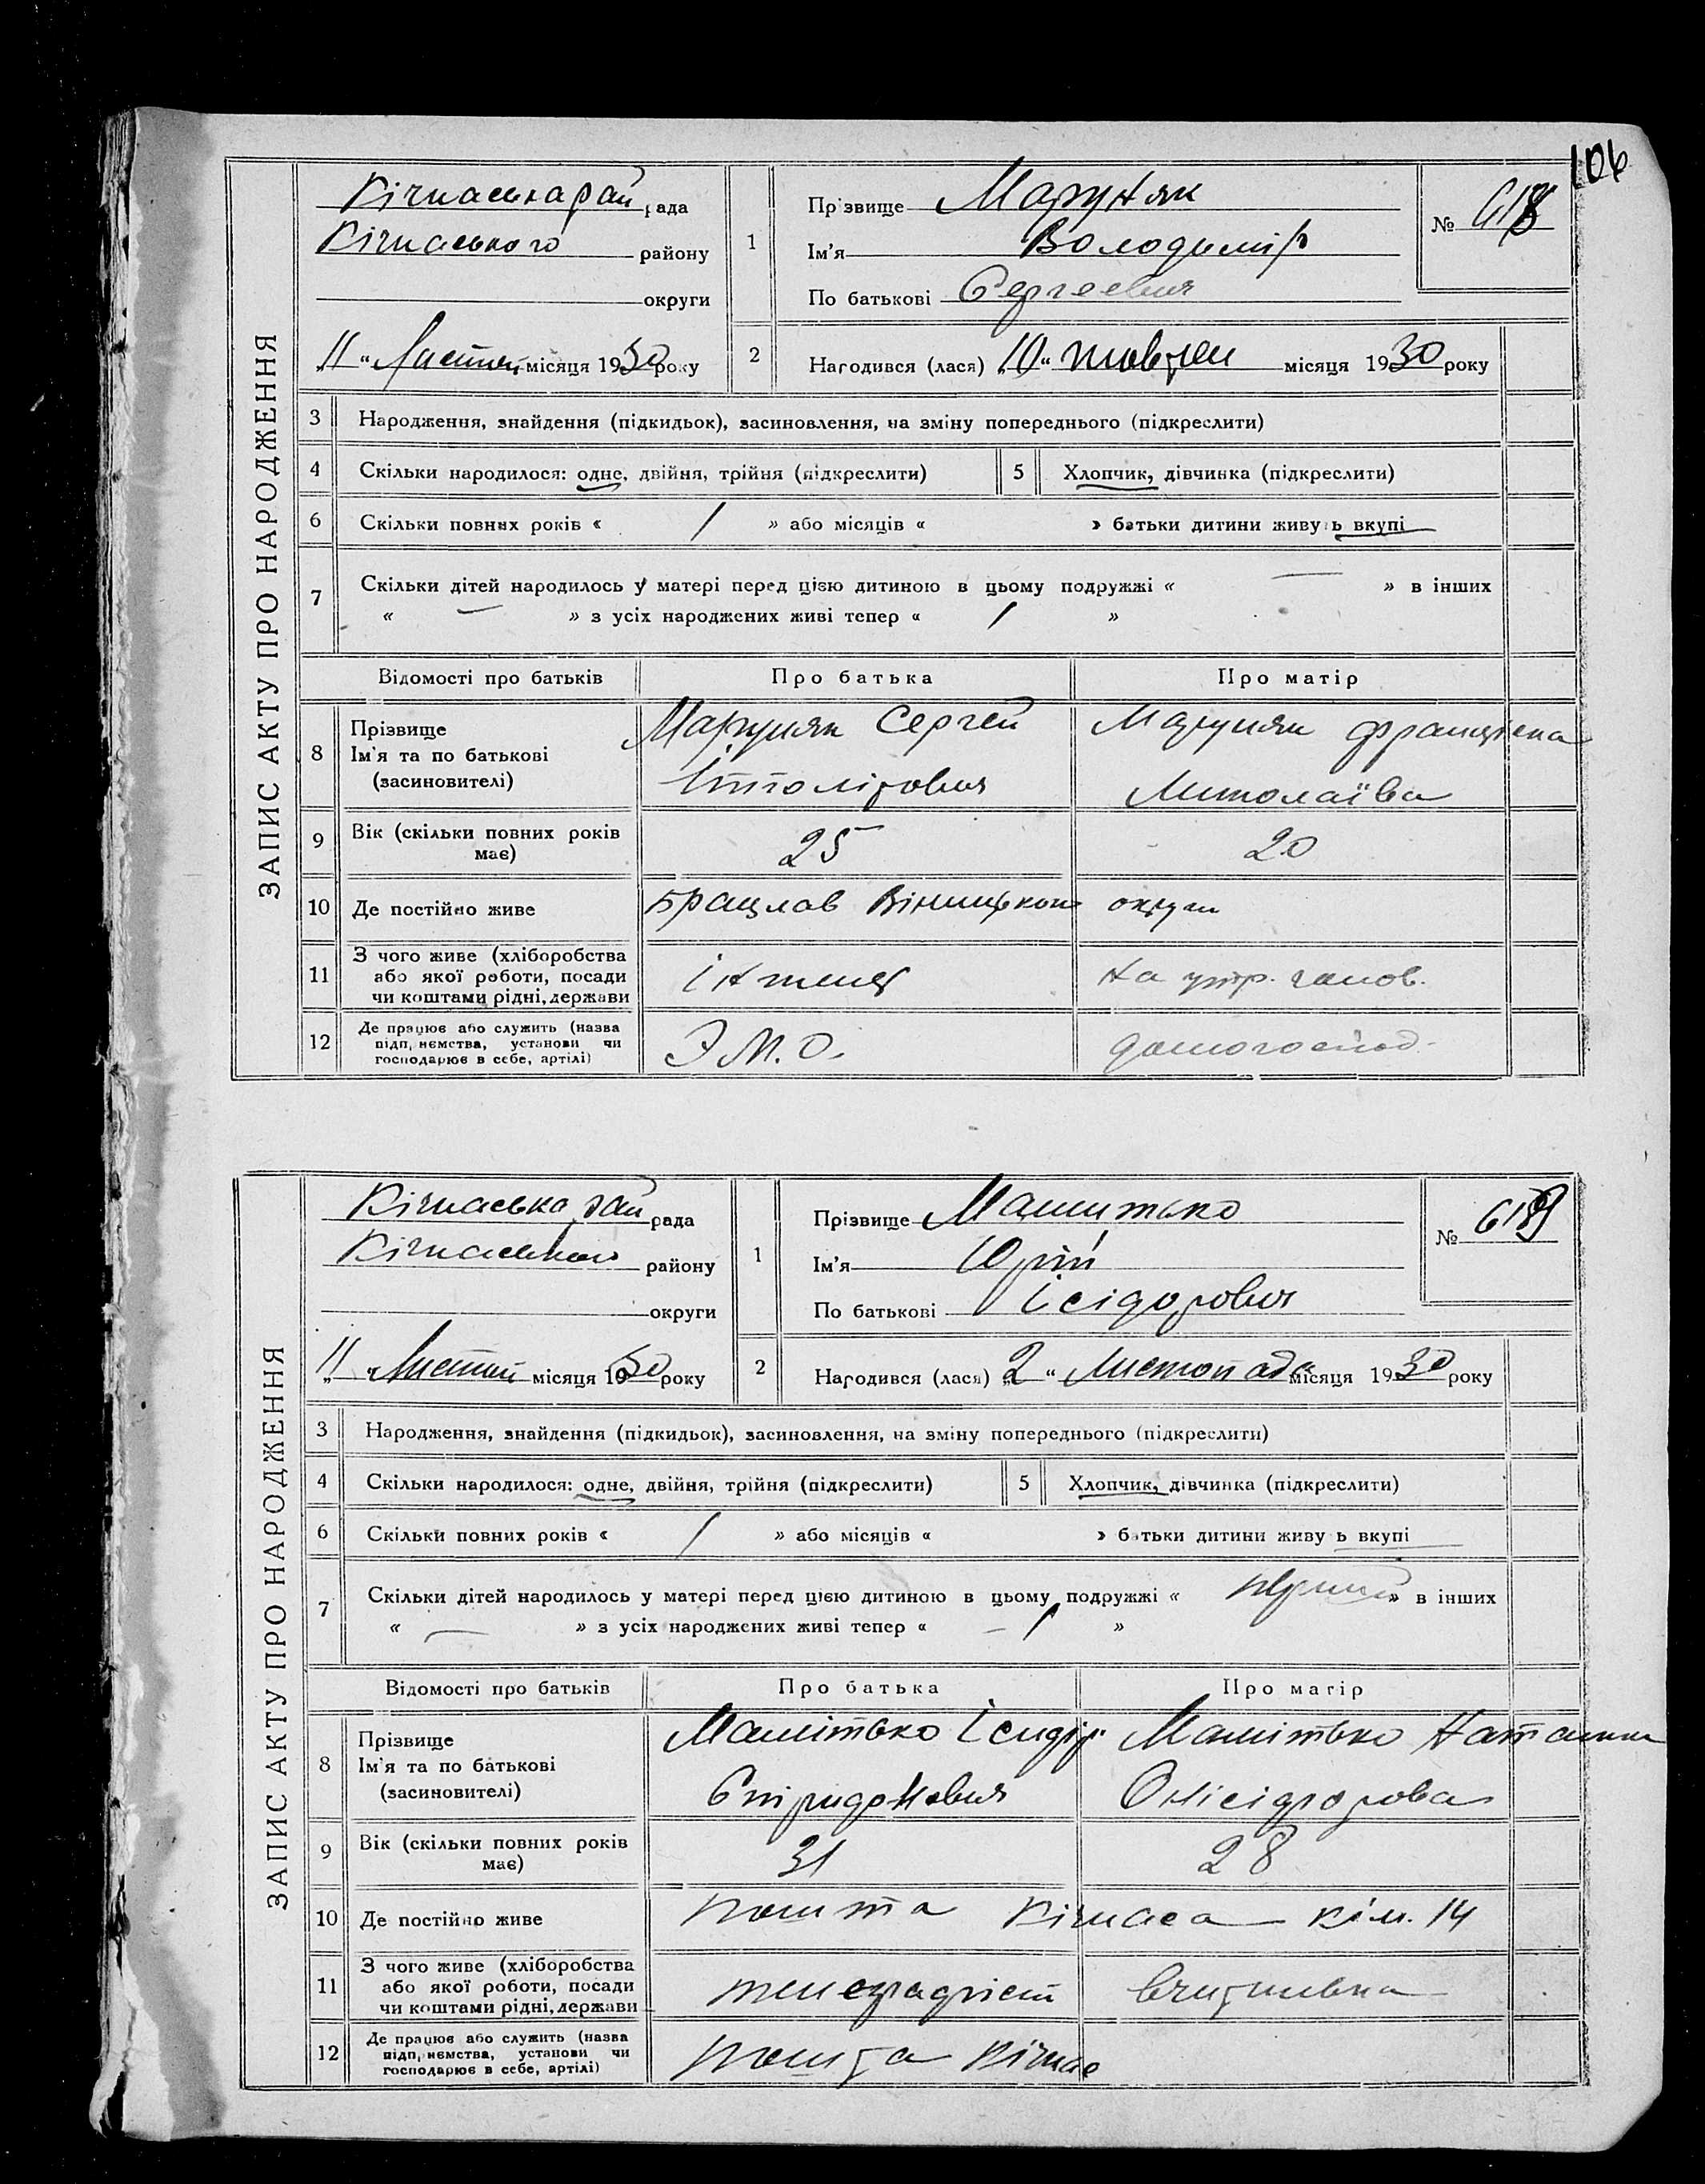 106
ЗАПИС АКТУ ПРО НАРОДЖЕННЯ
Кічкаська рай рада
Кічкаського району
округи
„11“ Листоп. місяця 1930 року
1
Прізвище Маруняк
Ім'я Володимір
По батькові Сергеевич
№ 618
2
Народився (лася) „10“ жовтня місяця 1930 року
3 Народження, знайдення (підкидьок), засиновлення, на зміну попереднього (підкреслити)
4 Скільки народилося: одне, двійня, трійня (підкреслити)
5 Хлопчик, дівчинка (підкреслити)
6 Скільки повних років « / » або місяців « » батьки дитини живуть вкупі
7 Скільки дітей народилось у матері перед цією дитиною в цьому подружжі « — » в інших
« — » з усіх народжених живі тепер « / »
Відомості про батьків Про батька Про матір
8 Прізвище
Ім'я та по батькові
(засиновителі)
Маруняк Сергей
Іпполітович
Маруняк Францішка
Миколаївна
9 Вік (скільки повних років має) 25 20
10 Де постійно живе Брацлав Вінницької округи
11 З чого живе (хліборобства
або якої роботи, посади
чи коштами рідні, держави
інженер
на утр. чолов.
12 Де працює або служить (назва
підприємства, установи чи
господарює в себе, артілі)
Э.М.О.
домогоспод.
ЗАПИС АКТУ ПРО НАРОДЖЕННЯ
Кічкаська рай рада
Кічкаського району
округи
„11“ Листоп. місяця 1930 року
1
Прізвище
Ім'я Юрій
По батькові Ісідорович
№ 619
2
Народився (лася) „2“ Листопада місяця 1930 року
3 Народження, знайдення (підкидьок), засиновлення, на зміну попереднього (підкреслити)
4 Скільки народилося: одне, двійня, трійня (підкреслити)
5 Хлопчик, дівчинка (підкреслити)
6 Скільки повних років « / » або місяців « » батьки дитини живуть вкупі
7 Скільки дітей народилось у матері перед цією дитиною в цьому подружжі « перший » в інших
« — » з усіх народжених живі тепер « – / »
Відомості про батьків Про батька Про матір
8 Прізвище
Ім'я та по батькові
(засиновителі)
Ісидір
Спіридонович
9 Вік (скільки повних років має) 31 28
10 Де постійно живе пошта Кічкаса — кім. 14
11 З чого живе (хліборобства
або якої роботи, посади
чи коштами рідні, держави
телеграфіст
вчителька
12 Де працює або служить (назва
підприємства, установи чи
господарює в себе, артілі)
пошта Кічкас